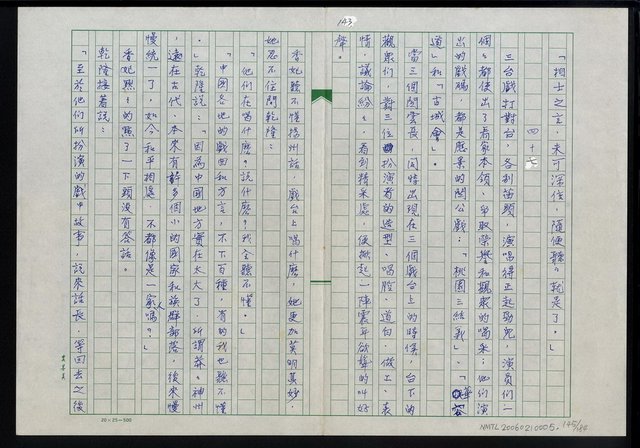 143
「相士之言，未可深信，隨便聽聽就是了。」
四十七
三台戲打對台，各別苗頭，演唱得正起勁兒，演員們一
個個都使出了看家本領，爭取榮譽和觀眾的喝采；他們演
出的戲碼，都是應景的關公戲：「桃園三結義」、「華容
道」和「古城會」。
當三個關雲長同時出現在三個戲台上的時候，台下的
觀眾們，對三位扮演者的造型、唱腔、道白、做工、表
情，議論紛紛，看到精采處，便掀起一陣震耳欲聾的叫好
聲。
香妃聽不懂揚州話，戲台上唱什麼，她更加莫明其妙，
她忍不住問乾隆：
「他們在唱什麼？說什麼？我全聽不懂。」
「中國各地的戲曲和方言，不下百種，有的我也聽不懂
。」乾隆說：「因為中國地方實在太大了，所謂莽莽神州
，遠在古代，本來有許多個小的國家和族群部落，後來慢
慢統一了，如今和平相處，不都像是一家人嗎？」
香妃默默的點了一下頭沒有答話。
乾隆接著說：
「至於他們所扮演的戲中故事，說來話長，等回去之後
20×25=500
NMTL20060210005.145/184